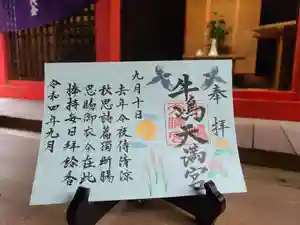 奉拝
牛嶋天満宮
九月十日
去年今夜侍清涼
秋思詩篇獨断腸
恩賜御衣今在此
捧持毎日拝餘香
令和四年九月